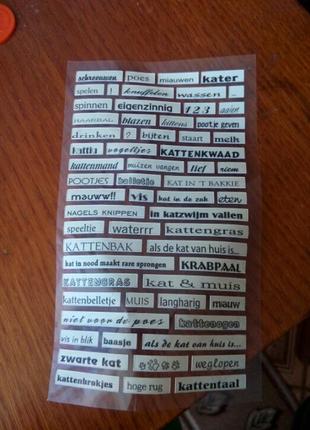 schreeuwen poes miauwen kater
spelen ! knuffelen wassen -
spinnen eigenzinnig 1 2 3 aaien
HAARBAL blazen kittens pootje geven
drinken ? bijten staart melk
kattig vogeltjes KATTENKWAAD
kattenmand muizen vangen lief niem
POOTJES balletje KAT IN 'T BAKKIE
mauww!! vis kat in de zak eten
NAGELS KNIPPEN in katzwijm vallen
speeltje waterrr kattengras
KATTENBAK als de kat van huis is...
kat in nood maakt rare sprongen KRABPAAL
KATTENGRAS kat & muis
kattenbelletje MUIS langharig mauw
niet voor de poes kattenogen
vis in blik baasje als de kat van huis is...
zwarte kat weglopen
kattenbrokjes hoge rug kattentaal